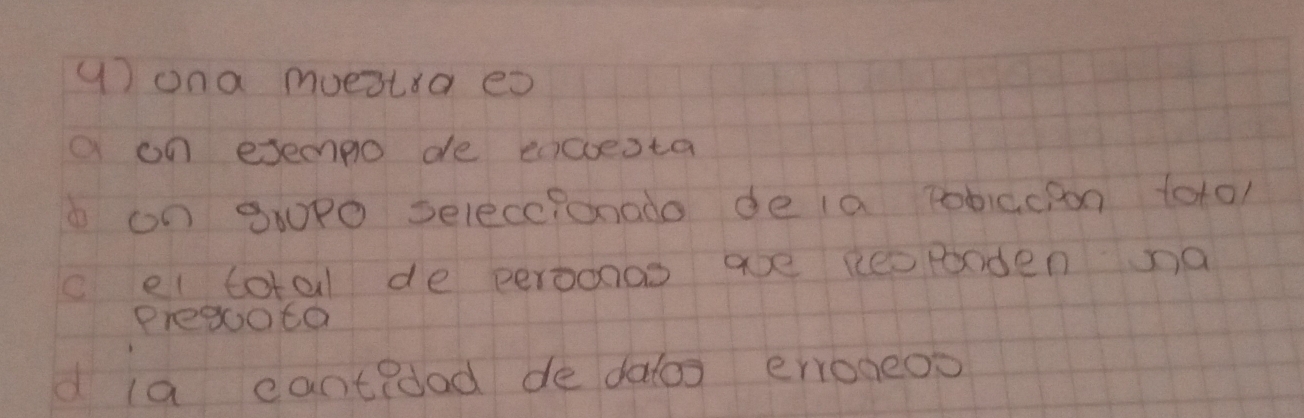 4) una muestra es
a un ejempo de encuesta
b un grupo seleccionado de la poblacion total
c el total de personas que responden una
pregunta
d la cantidad de datos erroneos